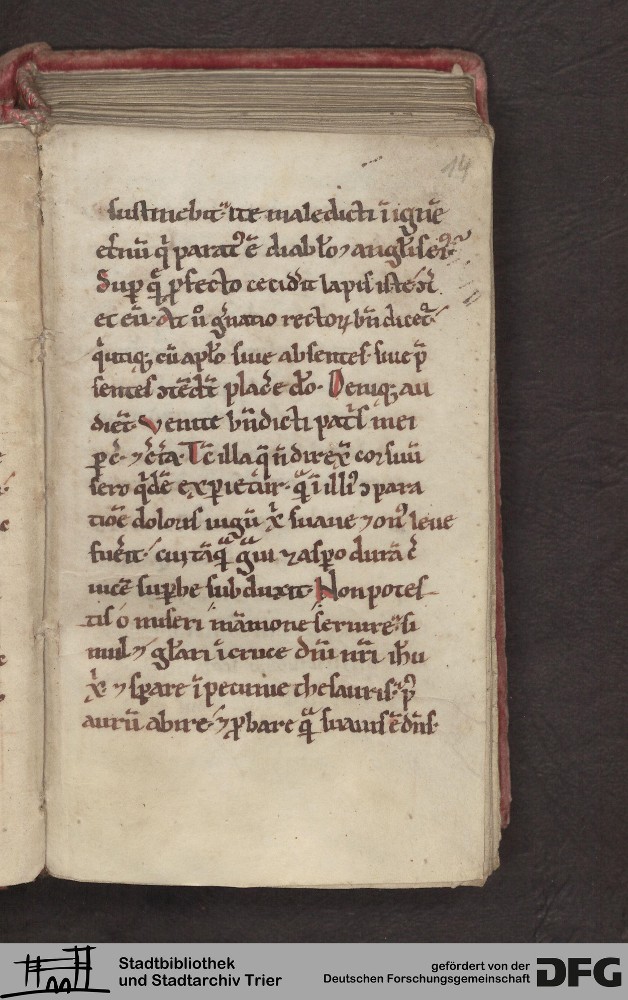 14
sustinebit· ite maledicti ī ignē
et̄nū q̇ parat᷒ ē diabl̵o ⁊ angl̵is ei᷒·
Sup̲ quē p̲fecto cecid̄it lapis iste ɔt̄
et eū· At ū̊ gn̄atio rectoꝝ bn̄dicet᷑·
q̄ utiq; cū apl̵o siue absentes· siue p̄
sentes ɔtēdūt plac̄e dō· Deniq; au
diēt· Venite bn̄dicti pat̄s mei
p̲c̄· ⁊ cet̄a· Tc̄ illa q̄ n̄ direx̄ cor suū
sero qͥdē exp̲iet᷑ur· quā ī illi᷒ ɔpara
tiōe doloris iugū x̄ suaue ⁊ on᷒ leue
fu̅it· cui tāquā gͣui ⁊ asp̲o durā c̄
uicē sup̲be subduxit· Non potes
tis o miseri māmone seruire· si
mul ⁊ gl̵ari ī cruce dn̄i nr̄i ih̄u
x̄· ⁊ sp̲are ī pecunie thesauris· p᷒
aurū abire· ⁊ p̲bare quā suauis ē dn̄s·
Stadtbibliothek
und Stadtarchiv Trier
gefördert von der
Deutschen Forschungsgemeinschaft
DFG